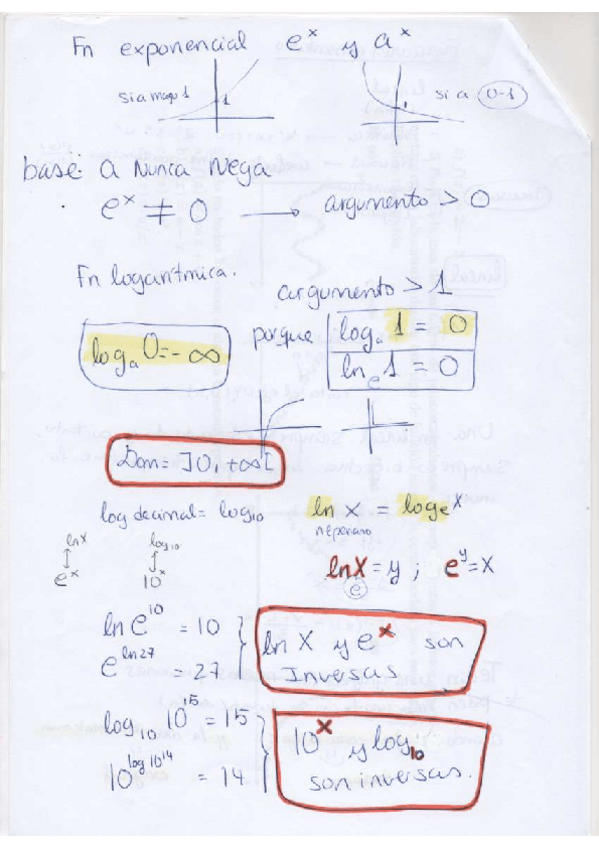 Fn exponencial e^x y a^x
si a mayo 1
1
si a 0-1
base: a Nunca Nega
e^x ≠ 0 → argumento > 0
Fn logarítmica.
argumento > 1
log_a 0 = - ∞
porque
log_a 1 = 0
ln_e 1 = 0
Dom = ]0, +∞[
log decimal = log_10
ln x = log_e x
neperiano
ln x
↕
e^x
log_10
↕
10^x
ln x = y ; e^y = x
e
ln e^10 = 10
e^ln 27 = 27
ln x y e^x son
Inversas
log_10 10^15 = 15
10^log 10^14 = 14
10^x y log_10
son inversas.